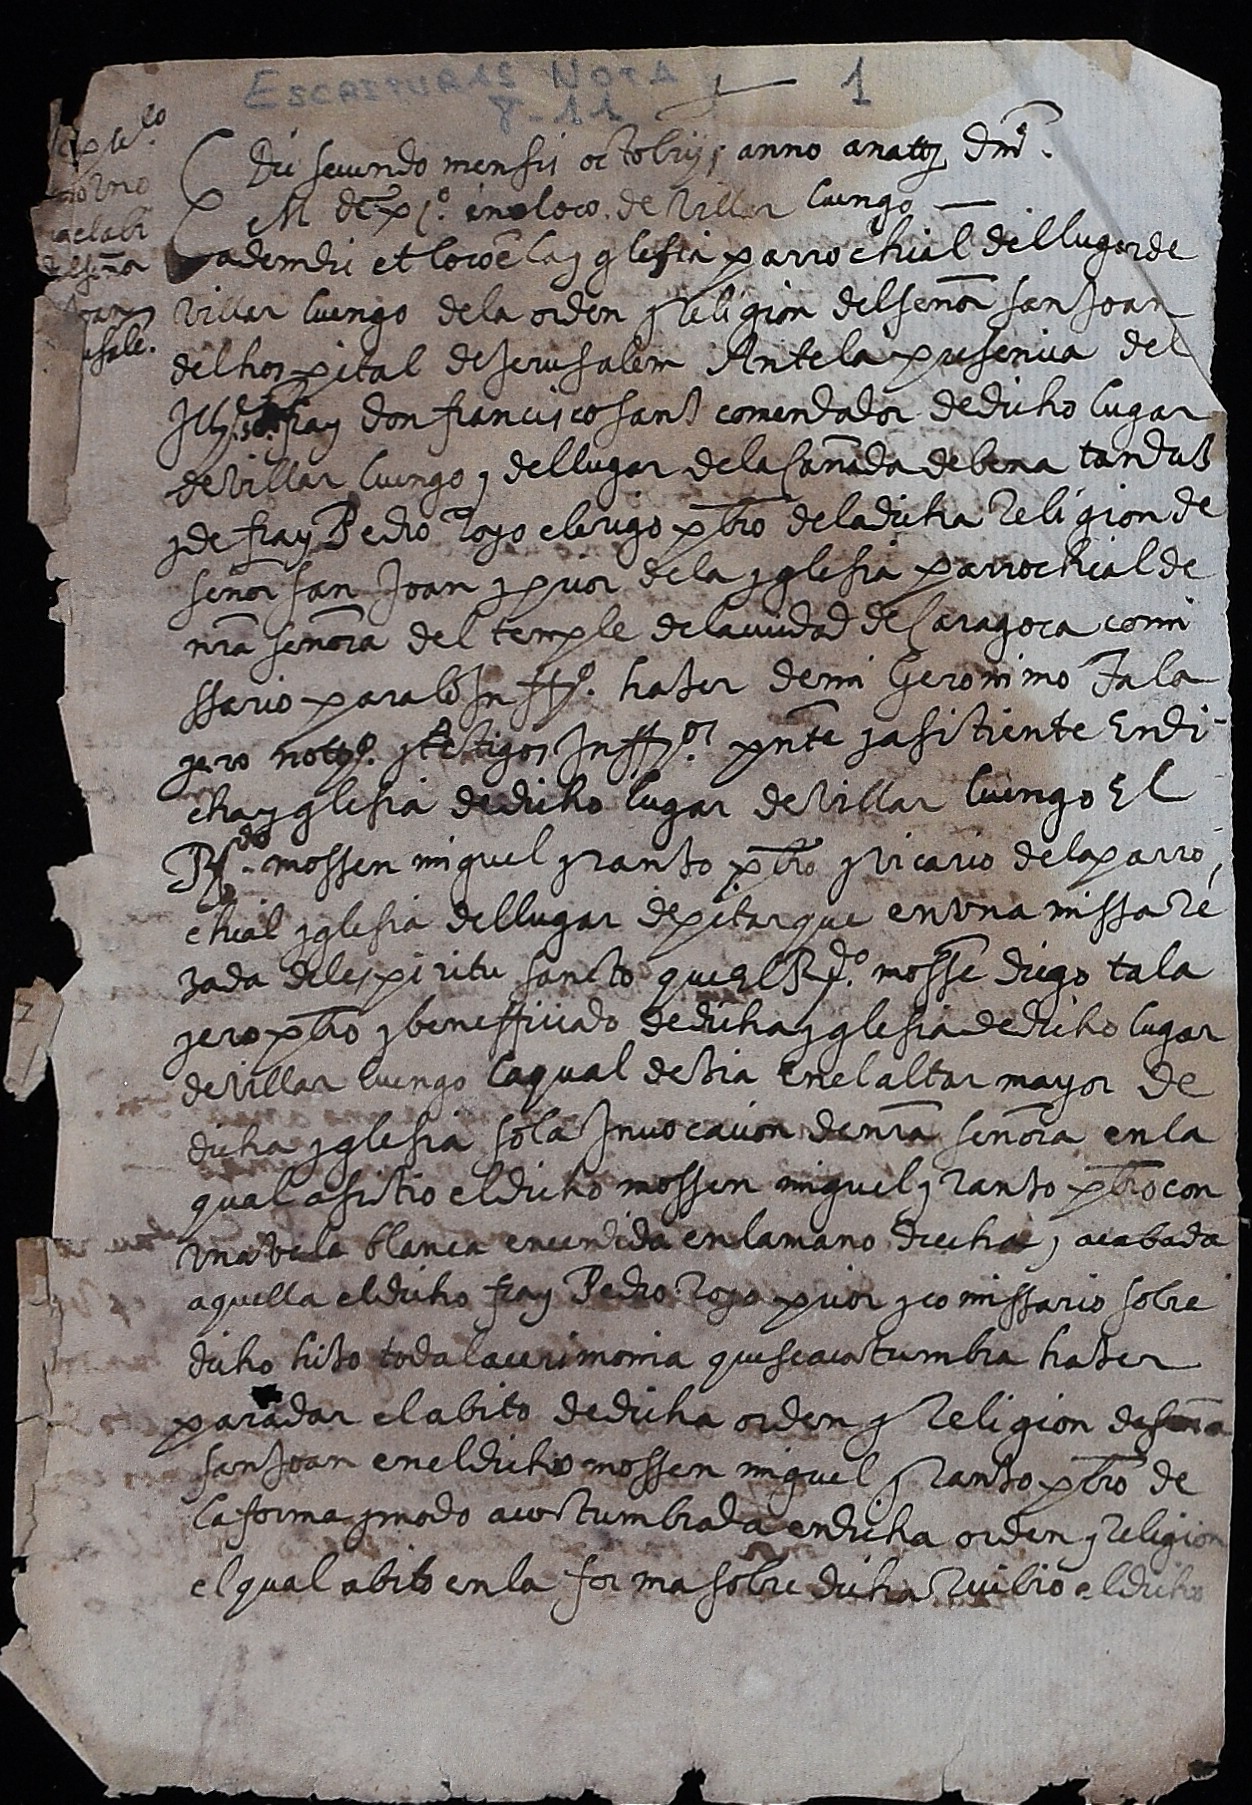 ESCRITURAS NOTA 1
8-11
Die secundo mensis octobris anno a natte dni
M de x jo. en el loco de Villar luengo
eadem die et loco en la yglesia parrochial del lugar de
Villar luengo de la orden y religion del señor san Joan
del hospital de Jerusalem Ante la presencia del
Ille. fray don francisco sanz comendador de dicho lugar
de Villar luengo y del lugar de la Cañada de bena tanduz
y de fray Pedro Royo clerigo pbro de la dicha Religion de
señor san Joan y prior de la yglesia parrochial de
nra señora del temple de la ciudad de Caragoca comi
ssario para lo Inffo. hazer de mi Geronimo Tala
yero noto. y testigos Inffos. pnte y asistiente En di-
cha yglesia de dicho lugar de Villar luengo El
Rdo. mossen miguel yranzo pbro y vicario de la parro,
chial yglesia del lugar de pitarque en una missa re
zada del espiritu sancto que El Rdo. mosse diego tala
yero pbro y benefficiado de dicha yglesia de dicho lugar
de Villar luengo la qual dezia en el altar mayor de
dicha yglesia so la Invocacion de nra señora en la
qual asistio el dicho mossen miguel yranzo pbro con
una vela blanca encendida en la mano drecha y acabada
aquella el dicho fray Pedro Royo prior y comissario sobre
dicho hizo toda la cerimonia que se acostumbra hazer
para dar el abito de dicha orden y religion de señor
san Joan en el dicho mossen miguel yranzo pbro de
la forma y modo acostumbrada en dicha orden y religion
el qual abito en la forma sobre dicha recibio el dicho